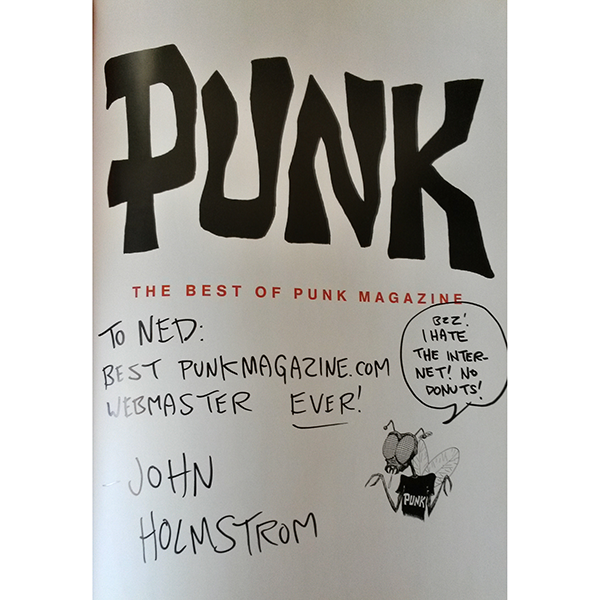 PUNK
THE BEST OF PUNK MAGAZINE
TO NED:
BEST PUNKMAGAZINE.COM
WEBMASTER EVER!
BZZ!
I HATE
THE INTER-
NET! NO
DONUTS!
PUNK
JOHN
HOLMSTROM